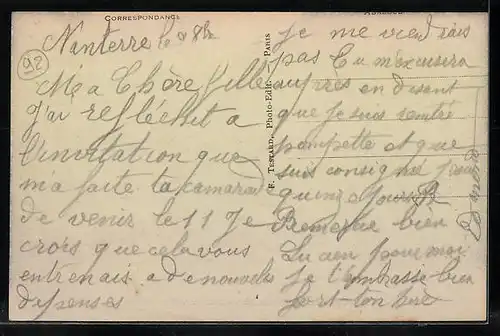 CORRESPONDANCE
ADRESSE
92
Nanterre le 8
Ma Chère fille
J'ai reflechit a
l'invitation que
m'a faite ta kamarade
de venir le 11 Je
crois que cela vous
entrenais a de nouvelles
depenses
F. TESTARD, Photo-Edit. PARIS
Je me viendrais
pas tu m'excusera
aupres en disant
que je suis rentré
pompette et que
suis consigné pour
quinze jours
Remercie bien
Lucien pour moi
Je t'embrasse bien
fort ton Pere